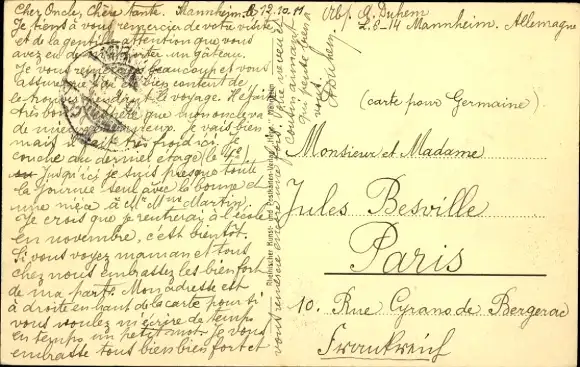 Cher Oncle, Chère tante. Mannheim, le 12.10.11
Je tiens à vous remercier de votre visite
et de la gentille attention que vous
avez eu de m'apporter un gâteau.
Je vous remercie beaucoup et vous
assure que j'ai bien content de
le voyage. Il fait
très bon que mon oncle va
de mieux en mieux. Je vais bien
mais il fait très froid ici. Je
couche au dernier étage (le 4e)
Jusqu'ici je suis presque toute
la journée seul avec la bonne et
une nièce à Mr Mme Martin.
Je crois que je rentrerai à l'école
en novembre, c'est bientôt.
Si vous voyez maman et tout
chez nous embrassez les bien fort
de ma part. Mon adresse est
à droite en haut de la carte pour si
vous voulez m'écrire de temps
en temps un petit mot. Je vous
embrasse tous bien bien fort et
vous remercie encore une fois. Votre neveu et
cousin aimant
qui pense bien à
vous.
A Duhem.
Rheinischer Kunst- und Postkarten-Verlag Mannheim
Abs. A. Duhem
L. 8-14 Mannheim. Allemagne
(carte pour Germaine)
Monsieur et Madame
Jules Besville
Paris
10. Rue Cyrano de Bergerac
Frankreich